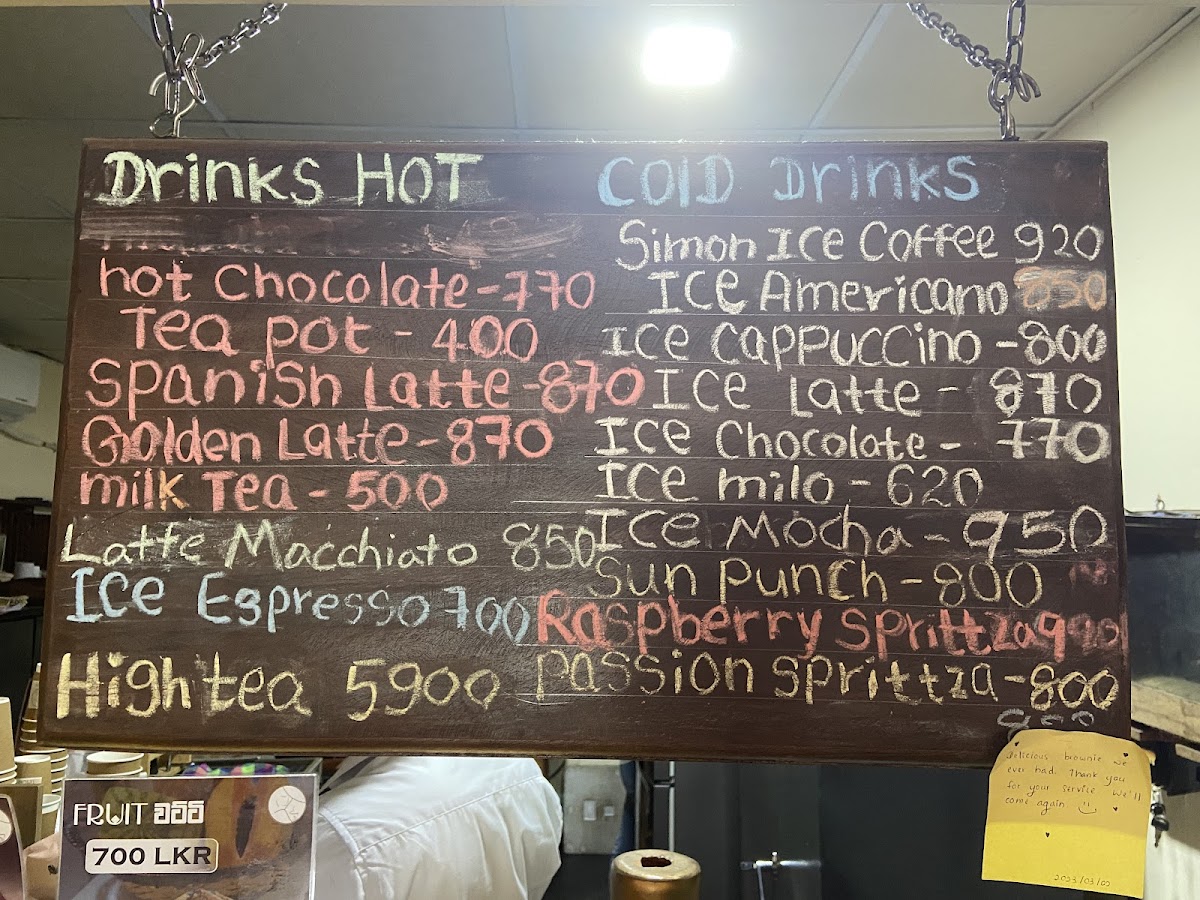 Drinks HOT
hot Chocolate - 770
Tea pot - 400
Spanish Latte - 870
Golden Latte - 870
milk Tea - 500
Latte Macchiato 850
Ice Espresso 700
High tea 5900
COlD Drinks
Simon ICe Coffee 920
ICe Americano 850
Ice Cappuccino - 800
ICe Latte - 870
ICe Chocolate - 770
ICe milo - 620
ICe Mocha - 950
Sun punch - 800
Raspberry sprittza 990
passion sprittza - 800
FRUIT වට්ටි
700 LKR
delicious brownie we
ever had. Thank you
for your service. We'll
come again
2023/03/02